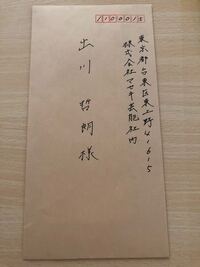 1100015
東京都台東区東上野4-16-15
株式会社マセキ芸能社内
出川哲朗様